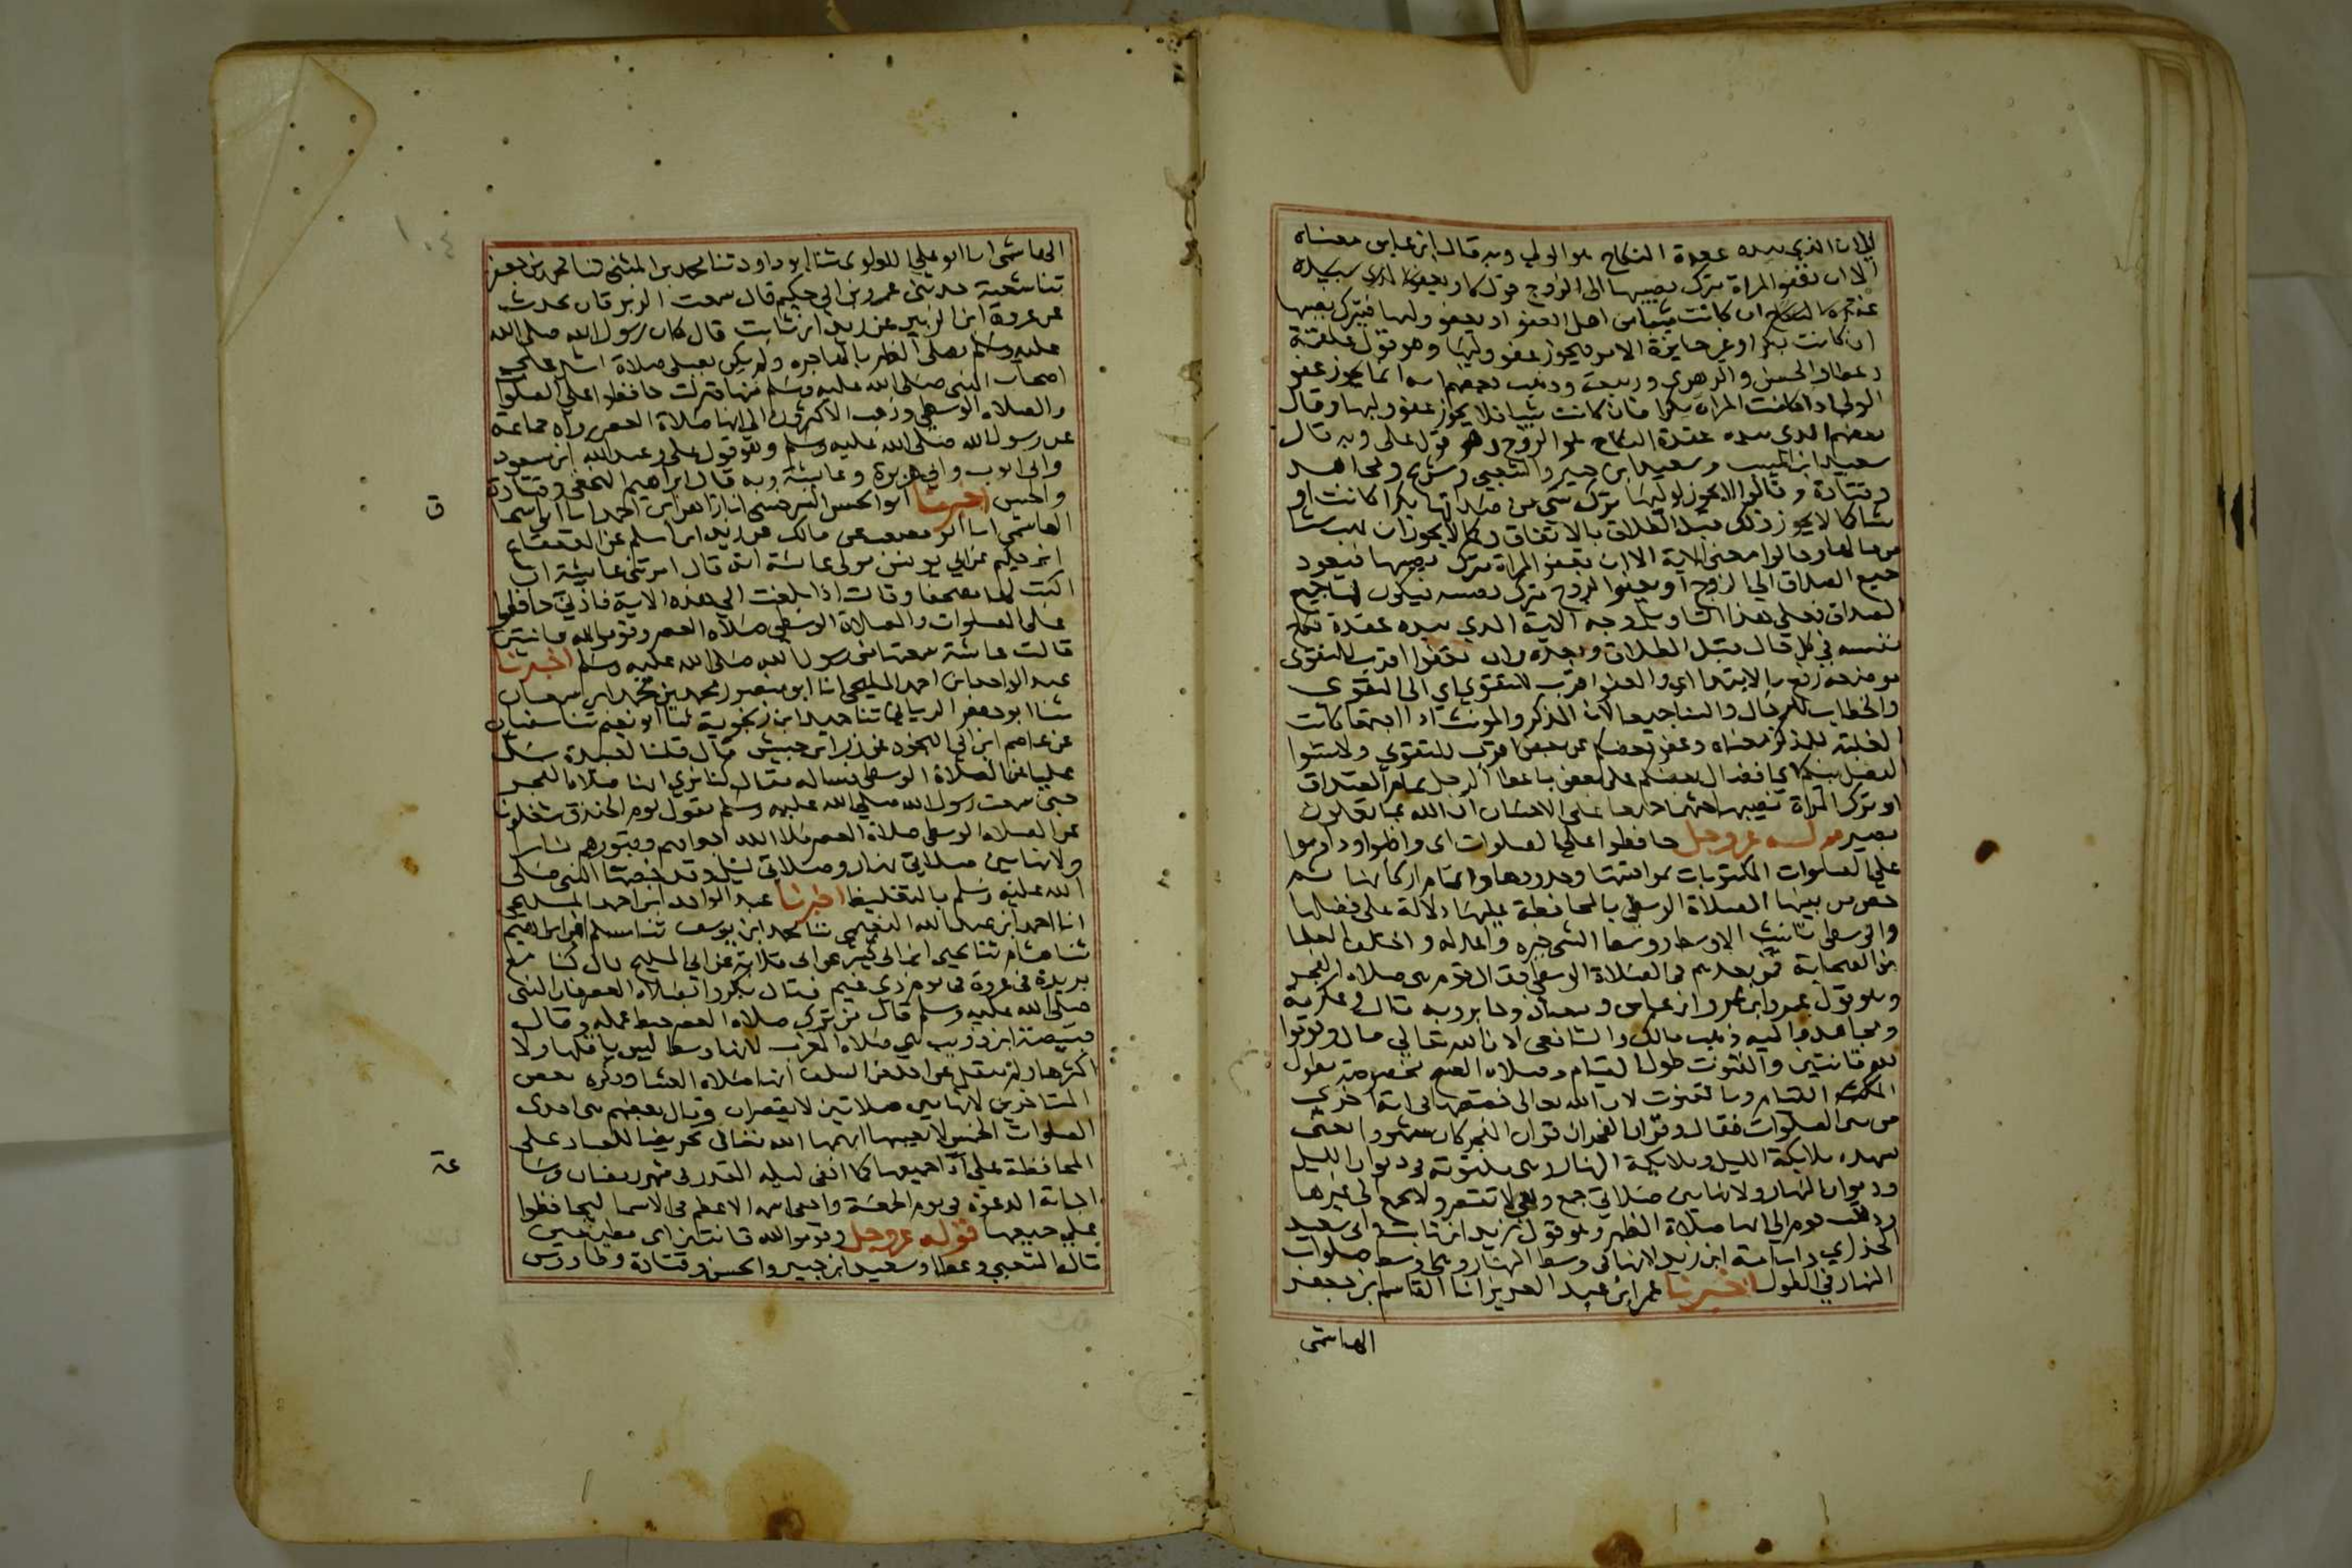 الي ان الذي بيده عقدة النكاح هو الولي وبه قال ابن عباس معناه
الا ان تعفو المراة بترك نصيبها الى الزوج قوله او يعفو الذي بيده
عقدة النكاح ان كانت ثيبا من اهل العفو او يعفو وليها فيترك نصيبها
ان كانت بكرا او غير جايزة الامر فيجوز عفو وليها وهو قول علقمة
وعطا والحسن والزهري وربيعة وذهب بعضهم انه انما يجوز عفو
الولي اذا كانت المراة بكرا فان كانت ثيبا فلا يجوز عفو وليها وقال
بعضهم الذي بيده عقدة النكاح هو الزوج وهو قول علي وبه قال
سعيد ابن المسيب وسعيد ابن جبير والشعبي وشريح ومجاهد
وقتادة وقالوا لا يجوز لوليها ترك شي من صداقها بكرا كانت او
ثيبا كما لا يجوز ذلك قبل الطلاق بالاتفاق وكما لا يجوز ان يهب شيا
من مالها وقالوا معنى الاية الا ان تعفو المراة بترك نصيبها فيعود
جميع الصداق الي الزوج او يعفو الزوج بترك نصيبه فيكون لها جميع
الصداق فعلي هذا التاويل وجه الاية الذي بيده عقدة نكاح
نفسه في كل حال قبل الطلاق وبعده وان تعفوا اقرب للتقوى
موضعه رفع بالابتدا اي والعفو اقرب للتقوي اي الى التقوي
والخطاب للرجال والنسا جميعا لان المذكر والمونث اذا اجتمعا كانت
الغلبة للمذكر معناه وعفو بعضكم عن بعض اقرب للتقوي ولا تنسوا
الفضل بينكم اي افضال بعضكم على بعض باعطا الرجل تمام الصداق
او ترك المراة نصيبها حثهما جميعا على الاحسان ان الله بما تعملون
بصير قوله عز وجل حافظوا على الصلوات اي واظبوا وداوموا
علي الصلوات المكتوبات بمواقيتها وحدودها واتمام اركانها ثم
خص من بينها الصلاة الوسطي بالمحافظة عليها دلالة على فضلها
والوسطى تانيث الاوسط ووسط الشي خيره واعدله واختلف العلما
من الصحابة فمن بعدهم في الصلاة الوسطى فقال قوم هي صلاة الفجر
وهو قول عمر وابن عمر وابن عباس ومعاذ وجابر وبه قال وعكرمة
ومجاهد واليه ذهب مالك والشافعي لان الله تعالي قال وقوموا
لله قانتين والقنوت طول القيام وصلاة الصبح مخصوصة بطول
القيام وبالقنوت لان الله تعالى خصها في اية اخرى
من بين الصلوات فقال وقران الفجر ان قران الفجر كان مشهودا يعني
يشهده ملايكة الليل وملايكة النهار في ديوان الليل
وديوان النهار ولانها بين صلاتي جمع وهي لا تقصر ولا تجمع الى غيرها
وذهب قوم الي انها صلاة الظهر وهو قول زيد ابن ثابت وابي سعيد
الخدري واسامة ابن زيد لانها في وسط النهار وهي اوسط صلوات
النهار في الطول اخبرنا عمر ابن عبد العزيز انا القاسم بن جعفر
الهاشمي
١٠٤
الهاشمي انا ابو علي اللولوي ثنا ابو داود ثنا محمد بن المثنى ثنا محمد بن جعفر
ثنا شعبة حدثني عمرو بن ابي حكيم قال سمعت الزبرقان يحدث
عن عروة ابن الزبير عن زيد ابن ثابت قال كان رسول الله صلى الله
عليه وسلم يصلي الظهر بالهاجرة ولم يكن يصلي صلاة اشد على
اصحاب النبي صلى الله عليه وسلم منها فنزلت حافظوا على الصلوات
والصلاة الوسطى وذهب الاكثرون الى انها صلاة العصر رواه جماعة
عن رسول الله صلى الله عليه وسلم وهو قول علي وعبد الله ابن مسعود
وابي ايوب وابي هريرة وعايشة وبه قال ابراهيم النخعي وقتادة
والحسن اخبرنا ابو الحسن السرخسي انا زاهر ابن احمد انا ابو اسحاق
ق
الهاشمي انا ابو مصعب عن مالك عن زيد ابن اسلم عن القعقاع
ابن حكيم عن ابي يونس مولى عائشة انه قال امرتني عايشة ان
اكتب لها مصحفا وقالت اذا بلغت الي هذه الاية فاذني حافظوا
على الصلوات والصلاة الوسطى صلاة العصر وقوموا لله قانتين
قالت عائشة سمعتها من رسول الله صلى الله عليه وسلم اخبرنا
عبد الواحد ابن احمد المليحي انا ابو منصور محمد بن محمد ابن سمعان
ثنا ابو جعفر الرياني ثنا حميد ابن زنجوية ثنا ابو نعيم ثنا سفيان
عن عاصم ابن ابي النجود عن زر ابن حبيش قال قلنا لعبيدة سل
عليا عن الصلاة الوسطى فساله فقال كنا نري انها صلاة الفجر
حتى سمعت رسول الله صلى الله عليه وسلم يقول يوم الخندق شغلونا
عن الصلاة الوسطى صلاة العصر ملا الله اجوافهم وقبورهم نارا
ولانها بين صلاتي نهار وصلاتي ليل وقد خصها النبي صلى
الله عليه وسلم بالتغليظ اخبرنا عبد الواحد ابن احمد المليحي
انا احمد ابن عبد الله النعيمي ثنا محمد ابن يوسف ثنا مسلم ابن ابراهيم
ثنا هشام ثنا يحيى ابن ابي كثير عن ابي قلابة عن ابي المليح قال كنا مع
بريدة في غزوة في يوم ذي غيم فقال بكروا بصلاة العصر فان النبي
صلى الله عليه وسلم قال من ترك صلاة العصر حبط عمله وقال
قبيصة ابن ذويب هي صلاة المغرب لانها وسط ليس باقلها ولا
اكثرها ولم ينقل عن احد من السلف انها صلاة العشا وذكره بعض
المتاخرين لانها بين صلاتين لا يقصران وقال بعضهم هي احدى
الصلوات الخمس لا بعينها ابهمها الله تعالى تحريضا للعباد على
المحافظة على اداء جميعها كما اخفى ليلة القدر في شهر رمضان وساعة
عة
اجابة الدعوة في يوم الجمعة واخفى اسمه الاعظم في الاسما ليحافظوا
على جميعها قوله عز وجل وقوموا لله قانتين اي مطيعين
قاله الشعبي وعطا وسعيد ابن جبير والحسن وقتادة وطاووس